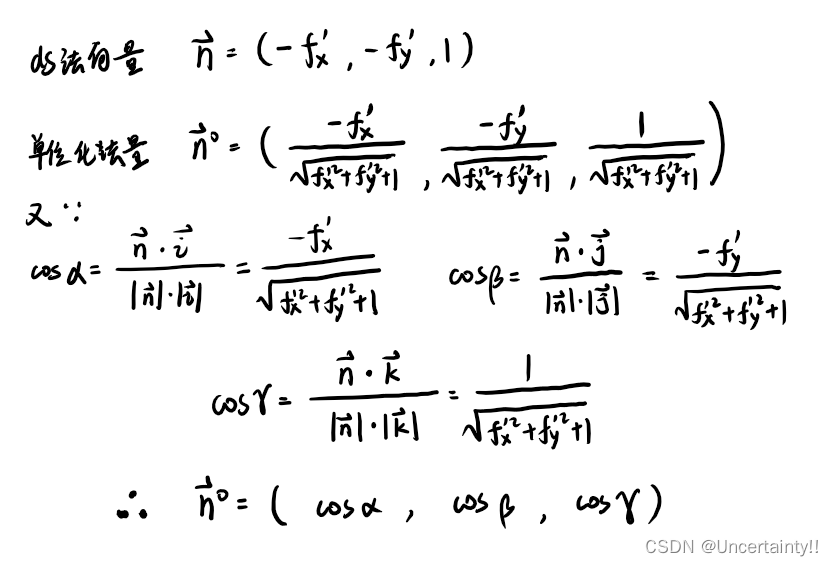 ds法向量 \vec{n} = (-f_x', -f_y', 1)
单位化法量 \vec{n}^0 = ( \frac{-f_x'}{\sqrt{f_x'^2+f_y'^2+1}}, \frac{-f_y'}{\sqrt{f_x'^2+f_y'^2+1}}, \frac{1}{\sqrt{f_x'^2+f_y'^2+1}} )
又∵
cosα = \frac{\vec{n}·\vec{i}}{|\vec{n}|·|\vec{i}|} = \frac{-f_x'}{\sqrt{f_x'^2+f_y'^2+1}} cosβ = \frac{\vec{n}·\vec{j}}{|\vec{n}|·|\vec{j}|} = \frac{-f_y'}{\sqrt{f_x'^2+f_y'^2+1}}
cosγ = \frac{\vec{n}·\vec{k}}{|\vec{n}|·|\vec{k}|} = \frac{1}{\sqrt{f_x'^2+f_y'^2+1}}
∴ \vec{n}^0 = ( cosα , cosβ , cosγ )
CSDN @Uncertainty!!